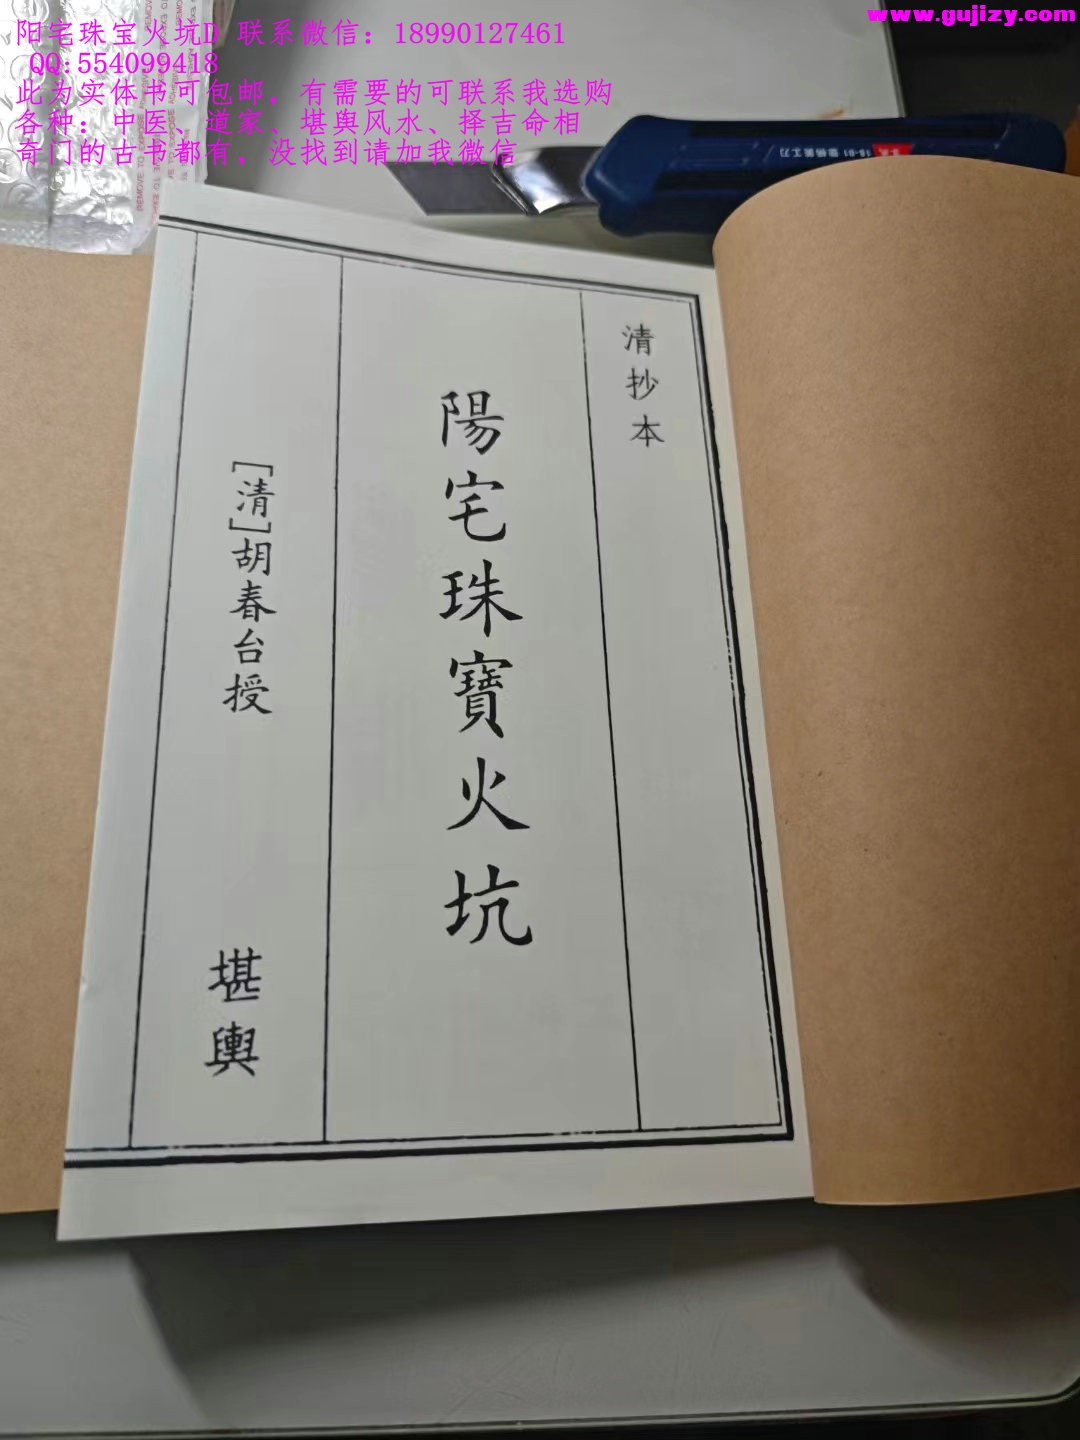 www.gujizy.com
阳宅珠宝火坑D 联系微信：18990127461
QQ:554099418
此为实体书可包邮，有需要的可联系我选购
各种：中医、道家、堪舆风水、择吉命相
奇门的古书都有，没找到请加我微信
清抄本
陽宅珠寶火坑
[清]胡春台授
堪輿